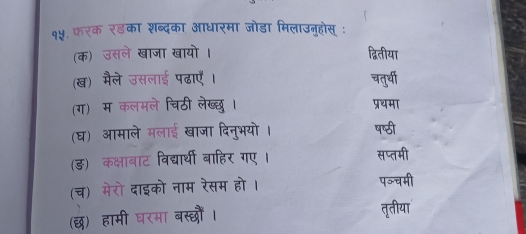 १५. फरक रङका शब्दका आधारमा जोडा मिलाउनुहोस् :
(क) उसले खाजा खायो । द्वितीया
(ख) मैले उसलाई पढाएँ । चतुर्थी
(ग) म कलमले चिठी लेख्छु । प्रथमा
(घ) आमाले मलाई खाजा दिनुभयो । षष्ठी
(ङ) कक्षाबाट विद्यार्थी बाहिर गए । सप्तमी
(च) मेरो दाइको नाम रेसम हो । पञ्चमी
(छ) हामी घरमा बस्छौँ । तृतीया